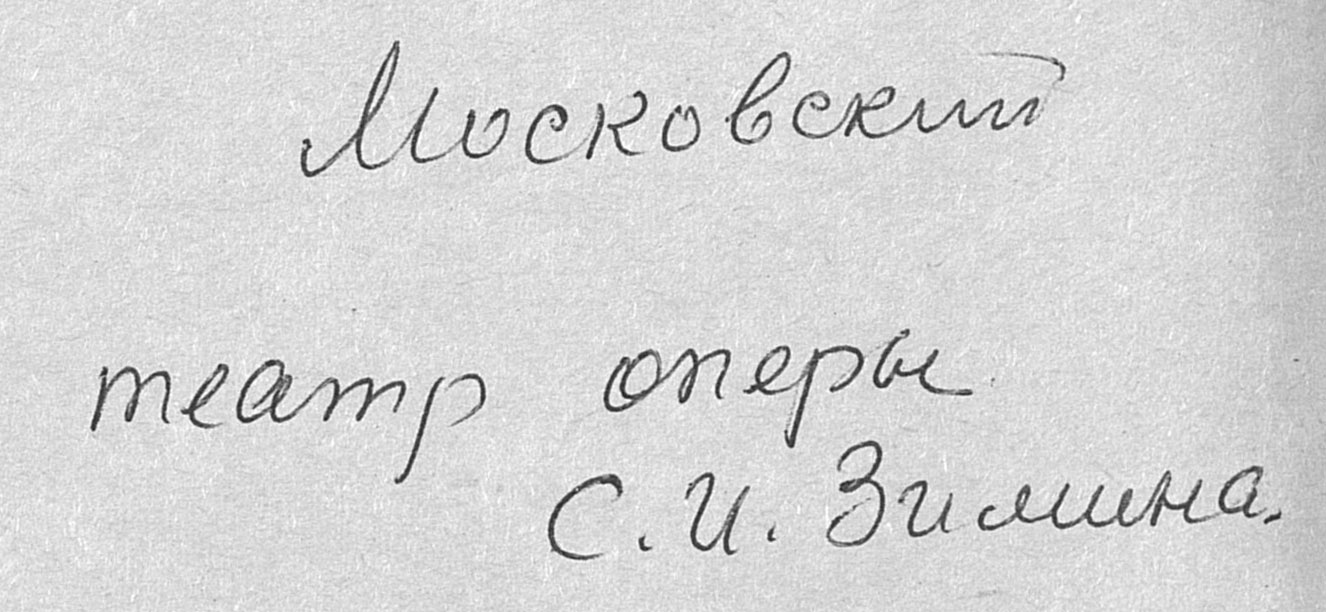 Московский
театр оперы
С. И. Зимина.